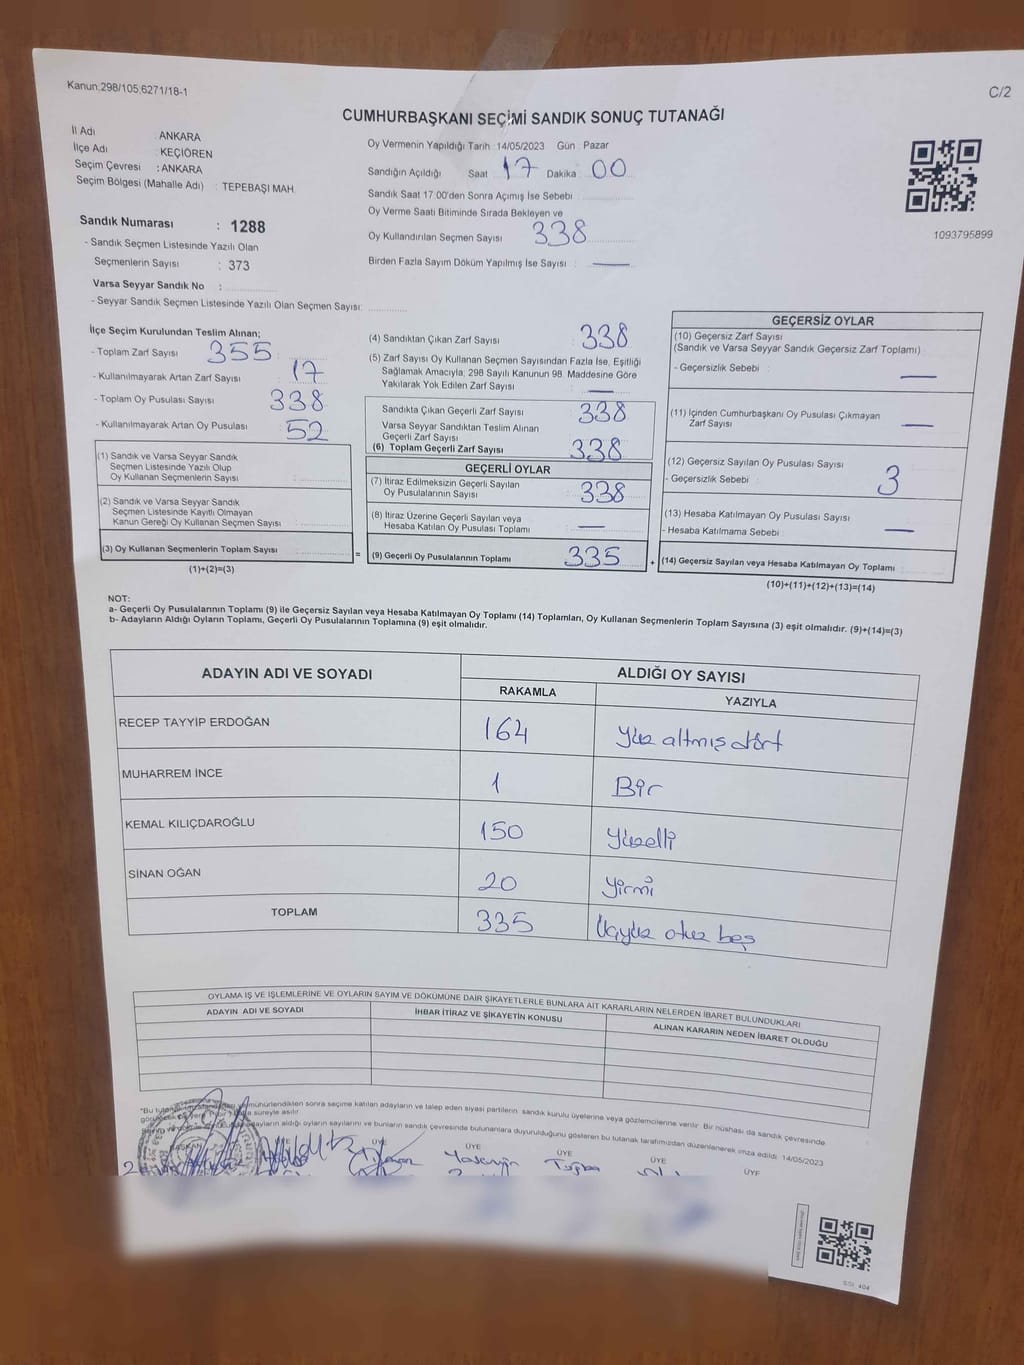 Kanun;298/105;6271/18-1
C/2
CUMHURBAŞKANI SEÇİMİ SANDIK SONUÇ TUTANAĞI
İl Adı : ANKARA
İlçe Adı : KEÇİÖREN
Seçim Çevresi : ANKARA
Seçim Bölgesi (Mahalle Adı) : TEPEBAŞI MAH.
Oy Vermenin Yapıldığı Tarih :14/05/2023 Gün Pazar
Sandığın Açıldığı Saat 17 Dakika 00
Sandık Saat 17:00'den Sonra Açımış İse Sebebi
Oy Verme Saati Bitiminde Sırada Bekleyen ve
Oy Kullandırılan Seçmen Sayısı 338
Birden Fazla Sayım Döküm Yapılmış İse Sayısı : —
1093795899
Sandık Numarası : 1288
- Sandık Seçmen Listesinde Yazılı Olan
Seçmenlerin Sayısı : 373
Varsa Seyyar Sandık No :
- Seyyar Sandık Seçmen Listesinde Yazılı Olan Seçmen Sayısı:
İlçe Seçim Kurulundan Teslim Alınan;
- Toplam Zarf Sayısı 355
- Kullanılmayarak Artan Zarf Sayısı 17
- Toplam Oy Pusulası Sayısı 338
- Kullanılmayarak Artan Oy Pusulası 52
(1) Sandık ve Varsa Seyyar Sandık
Seçmen Listesinde Yazılı Olup
Oy Kullanan Seçmenlerin Sayısı :
(2) Sandık ve Varsa Seyyar Sandık
Seçmen Listesinde Kayıtlı Olmayan
Kanun Gereği Oy Kullanan Seçmen Sayısı :
(3) Oy Kullanan Seçmenlerin Toplam Sayısı =
(1)+(2)=(3)
(4) Sandıktan Çıkan Zarf Sayısı 338
(5) Zarf Sayısı Oy Kullanan Seçmen Sayısından Fazla İse, Eşitliği
Sağlamak Amacıyla; 298 Sayılı Kanunun 98. Maddesine Göre
Yakılarak Yok Edilen Zarf Sayısı : —
Sandıkta Çıkan Geçerli Zarf Sayısı : 338
Varsa Seyyar Sandıktan Teslim Alınan
Geçerli Zarf Sayısı
(6) Toplam Geçerli Zarf Sayısı 338
GEÇERLİ OYLAR
(7) İtiraz Edilmeksizin Geçerli Sayılan
Oy Pusulalarının Sayısı : 338
(8) İtiraz Üzerine Geçerli Sayılan veya
Hesaba Katılan Oy Pusulası Toplamı : —
(9) Geçerli Oy Pusulalarının Toplamı : 335 +
GEÇERSİZ OYLAR
(10) Geçersiz Zarf Sayısı
(Sandık ve Varsa Seyyar Sandık Geçersiz Zarf Toplamı)
- Geçersizlik Sebebi : —
(11) İçinden Cumhurbaşkanı Oy Pusulası Çıkmayan
Zarf Sayısı : —
(12) Geçersiz Sayılan Oy Pusulası Sayısı
- Geçersizlik Sebebi : 3
(13) Hesaba Katılmayan Oy Pusulası Sayısı
- Hesaba Katılmama Sebebi : —
(14) Geçersiz Sayılan veya Hesaba Katılmayan Oy Toplamı :
(10)+(11)+(12)+(13)=(14)
NOT:
a- Geçerli Oy Pusulalarının Toplamı (9) ile Geçersiz Sayılan veya Hesaba Katılmayan Oy Toplamı (14) Toplamları, Oy Kullanan Seçmenlerin Toplam Sayısına (3) eşit olmalıdır. (9)+(14)=(3)
b- Adayların Aldığı Oyların Toplamı, Geçerli Oy Pusulalarının Toplamına (9) eşit olmalıdır.
ADAYIN ADI VE SOYADI ALDIĞI OY SAYISI
RAKAMLA YAZIYLA
RECEP TAYYİP ERDOĞAN 164 Yüz altmış dört
MUHARREM İNCE 1 Bir
KEMAL KILIÇDAROĞLU 150 Yüzelli
SİNAN OĞAN 20 Yirmi
TOPLAM 335 Üçyüz otuz beş
OYLAMA İŞ VE İŞLEMLERİNE VE OYLARIN SAYIM VE DÖKÜMÜNE DAİR ŞİKAYETLERLE BUNLARA AİT KARARLARIN NELERDEN İBARET BULUNDUKLARI
ADAYIN ADI VE SOYADI İHBAR İTİRAZ VE ŞİKAYETİN KONUSU ALINAN KARARIN NEDEN İBARET OLDUĞU
*Bu mühürlendikten sonra seçime katılan adayların ve talep eden siyasi partilerin sandık kurulu üyelerine veya gözlemcilerine verilir. Bir nüshası da sandık çevresinde
süreyle asılır.
adayların aldığı oyların sayılarını ve bunların sandık çevresinde bulunanlara duyurulduğunu gösteren bu tutanak tarafımızdan düzenlenerek imza edildi. 14/05/2023
BAŞKAN ÜYE ÜYE ÜYE ÜYE ÜYE ÜYE